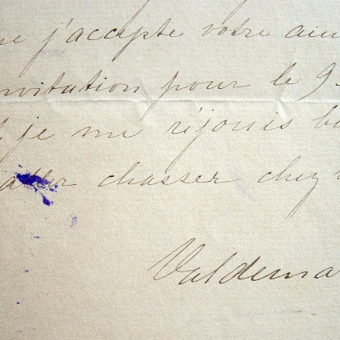 ue j'accepte votre aim
nvitation pour le 9.
je me réjouis b
chasser chez
Valdema